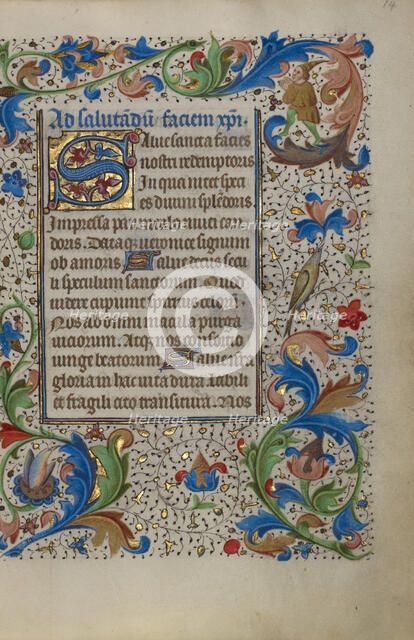 14
Ad salutādū faciem xp̄i
Salue sancta facies
nostri redemptoris
In qua nitet speci
es diuini splēdoris
Impressa panniculo niuei can
doris. Dataque veronice signum
ob amorē Salue decus secu
li speculum sanctorum Quod
videre cupiunt spiritus celorum
Nos ab omni macula purga
viciorum. Atque nos consortio
iunge beatorum Salue nr̄a
gloria in hac vita dura labili
et fragili cito transitura. Nos
Heritage
Heritage
Heritage
Heritage
Heritage
Heritage